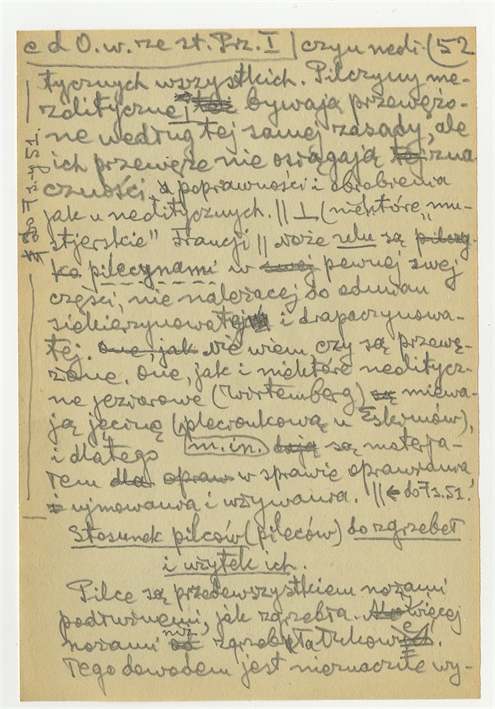 c d O. w. ze st. Prz. I czyn neoli- (52
tycznych wszystkich. Pilczyny me-
zolitycznej bywają przewężo-
ne według tej samej zasady, ale
ich przewęże nie osiągają zna
czności, a poprawności i obrobienia
jak u neolitycznych. || ⊥ (niektóre „mu-
stjerskie" Francji || noże ulu są
ka pilczynami w pewnej swej
części, nie należącej do odmian
siekierzynowatej i drapaczynowa-
tej. nie wiem czy są przewę-
żone. One, jak i niektóre neolitycz-
ne jeziorowe (Wirtemberg) miewa-
ją jęcinę (plecionkową u Eskimów),
i dlatego m. in. są materja-
łem w sprawie oprawiania
i ujmowania i używania. || ← do 7 s. 51.
Stosunek pilców (pileców) do zgrzebeł
i użytek ich.
Pilce są przedewszystkiem nożami
podłużnemi, jak zgrzebła. więcej
nożami niż zgrzebła
Tego dowodem jest nieznaczne wy-